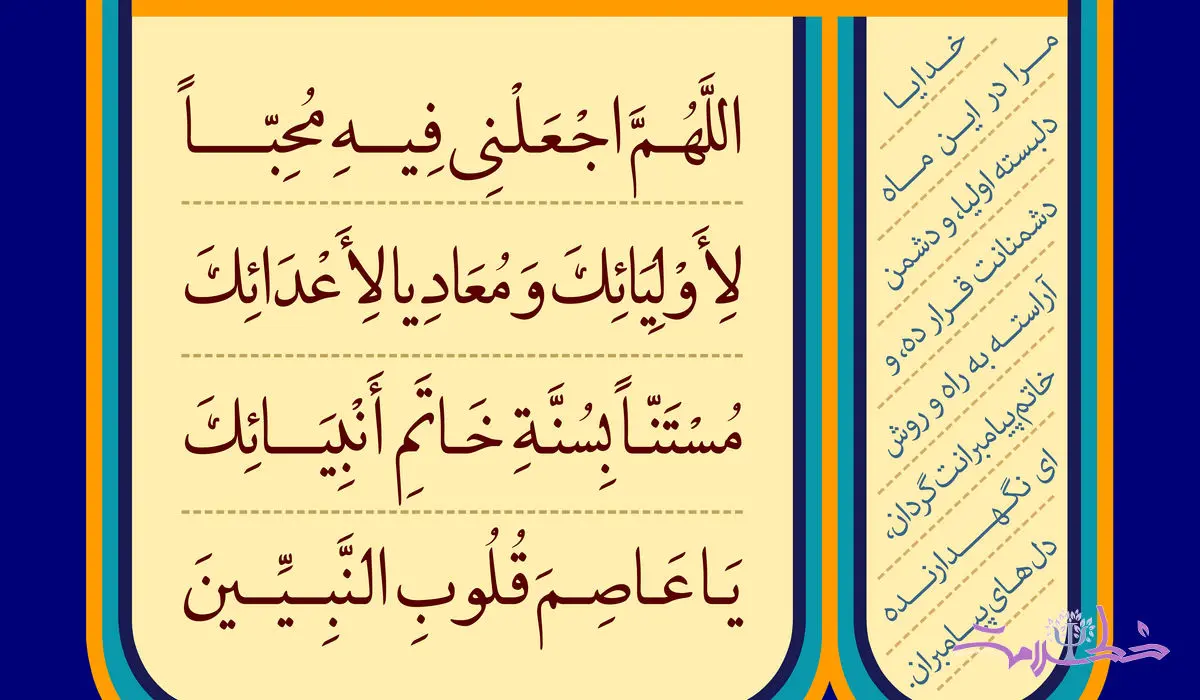 اللَّهُمَّ اجْعَلْنِي فِيهِ مُحِبّاً
لِأَوْلِيَائِكَ وَ مُعَادِيا لِأَعْدَائِكَ
مُسْتَنّاً بِسُنَّةِ خَاتَمِ أَنْبِيَائِكَ
يَا عَاصِمَ قُلُوبِ النَّبِيِّينَ
خدایا
مرا در این ماه
دلبسته اولیاء و دشمن
دشمنانت قرار ده، و
آراسته به راه و روش
خاتم پیامبرانت گردان،
ای نگهدارنده
دل‌های پیامبران.
خط سلامت